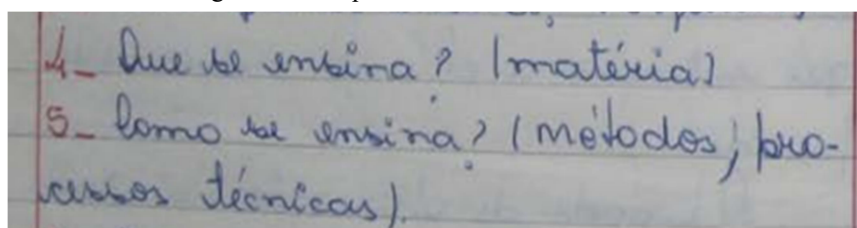 4- Que se ensina? (matéria)
5- Como se ensina? (métodos; pro-
cessos técnicas).